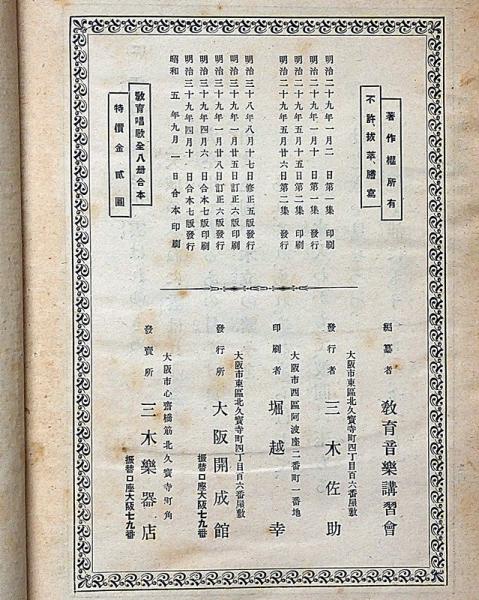 著作權所有
不許拔萃謄寫
明治二十九年一月二日第一集印刷
明治二十九年一月十日第一集發行
明治二十九年五月十五日第二集印刷
明治二十九年五月廿六日第二集發行
明治三十八年八月十七日修正五版發行
明治三十九年一月廿五日訂正六版印刷
明治三十九年一月廿八日訂正六版發行
明治三十九年四月六日合本七版印刷
明治三十九年四月十日合本七版發行
昭和五年九月一日合本印刷
教育唱歌全八册合本
特價金貳圓
編纂者 教育音樂講習會
大阪市東區北久寳寺町四丁目百六番屋敷
發行者 三木佐助
大阪市西區阿波座二番町一番地
印刷者 堀越幸
大阪市東區北久寳寺町四丁目百六番屋敷
發行所 大阪開成館
振替口座大阪七九番
大阪市心齋橋筋北久寳寺町角
發賣所 三木樂器店
振替口座大阪七九番